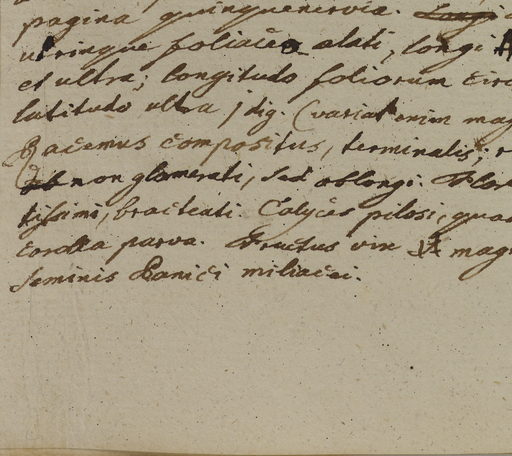 pagina quinquenervia. Longi
utrinque foliaceo-alati, longi
et ultra; longitudo foliorum circ
latitudo ultra j dig. (variat enim mag
Racemus compositus, terminalis;
non glomerati, sed oblongi. Flor
tissimi, bracteati. Calyces pilosi, qua
corolla parva. Fructus vix magn
seminis Panici miliacei.